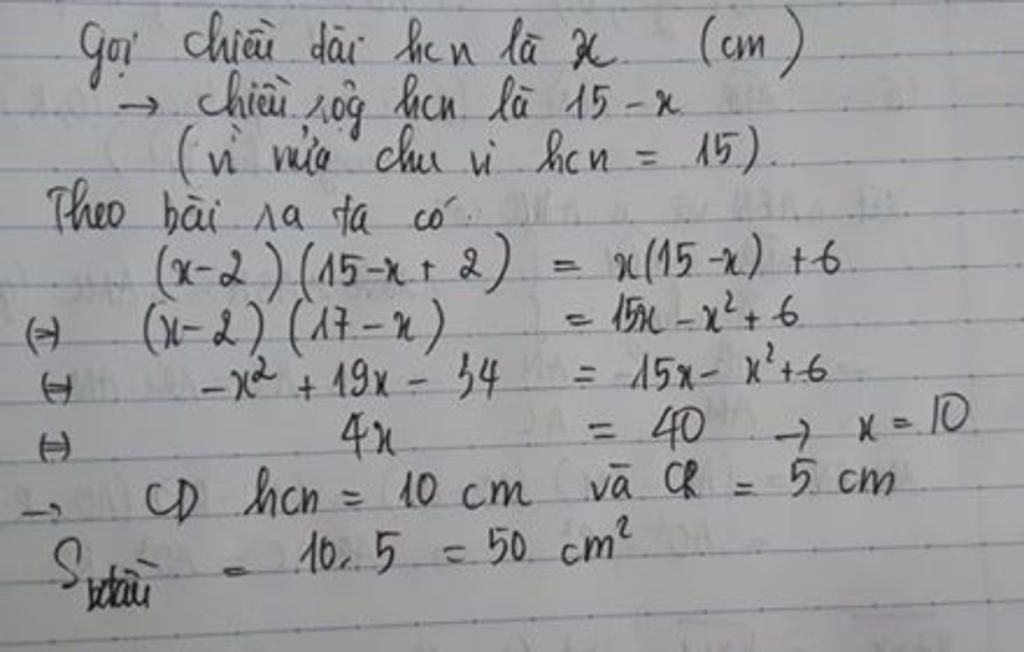 Gọi chiều dài hcn là x (cm)
→ chiều rộg hcn là 15 - x
(vì nửa chu vi hcn = 15).
Theo bài ra ta có
(x-2)(15-x+2) = x(15-x)+6
(=) (x-2)(17-x) = 15x - x²+6
(=) -x² + 19x - 34 = 15x - x²+6
(=) 4x = 40 → x = 10
→ CD hcn = 10 cm và CR = 5 cm
S = 10.5 = 50 cm²